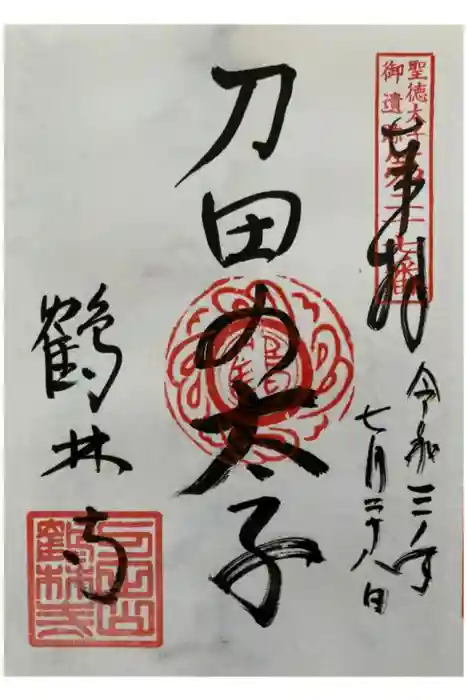 聖徳太子
御遺跡第二十七番
奉拝
令和三年
七月二十八日
刀田の太子
鶴林寺
刀田山
鶴林寺